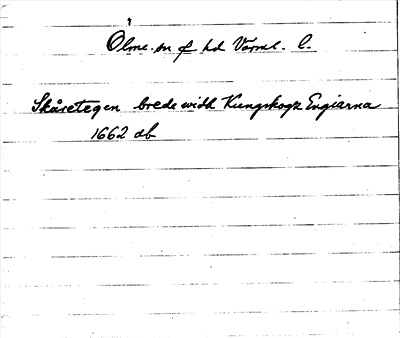 Ölme. sn f hd Värml. l.
Skåretegen brede widh Kungskogz Engiarna
1662 db